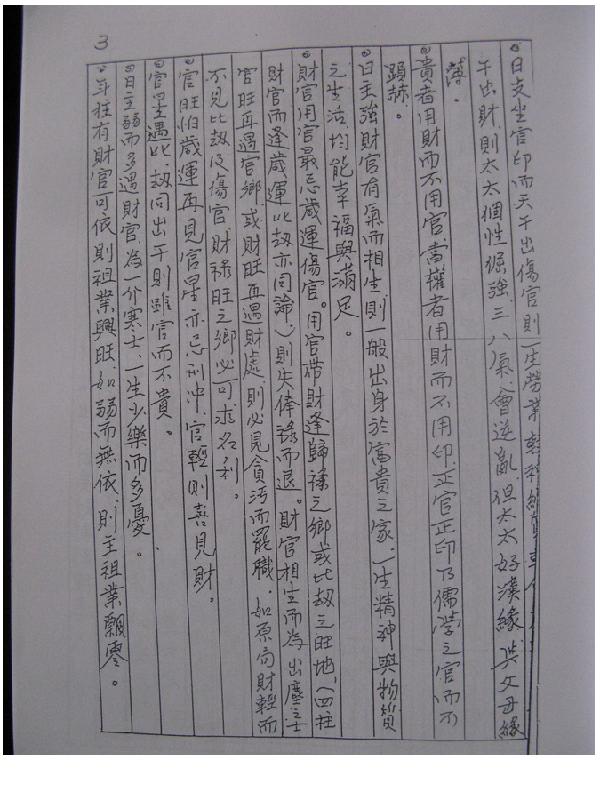 3
日支坐官印而天干出傷官則一生勞業
干出財則太太個性倔強三八氣會逆亂但太太好漢緣與父母緣
薄．
貴者用財而不用官當權者用財而不用印正官正印乃儒学之官而不
顕赫。
日主強財官有氣而相生則一般出身於富貴之家、一生精神與物質
之生活均能幸福與滿足。
財官用官最忌歲運傷官。用官帶財逢歸祿之鄉或比劫之旺地、(四柱
財官而逢歲運比劫亦同論、)則失俸祿而退。財官相生而為出塵之士
官旺再遇官鄉或財旺再遇財處則必見貪污而罷職．如原局財輕而
不見比劫及傷官財祿旺之鄉必可求名利．
官旺怕歲運再見官星亦忌刑冲官輕則喜見財．
官星遇比劫同出干則雖官而不貴。
日主弱而多遇財官為一介寒士、一生少樂而多憂。
年柱有財官可依則祖業興旺、如弱而無依、則主祖業飄零。